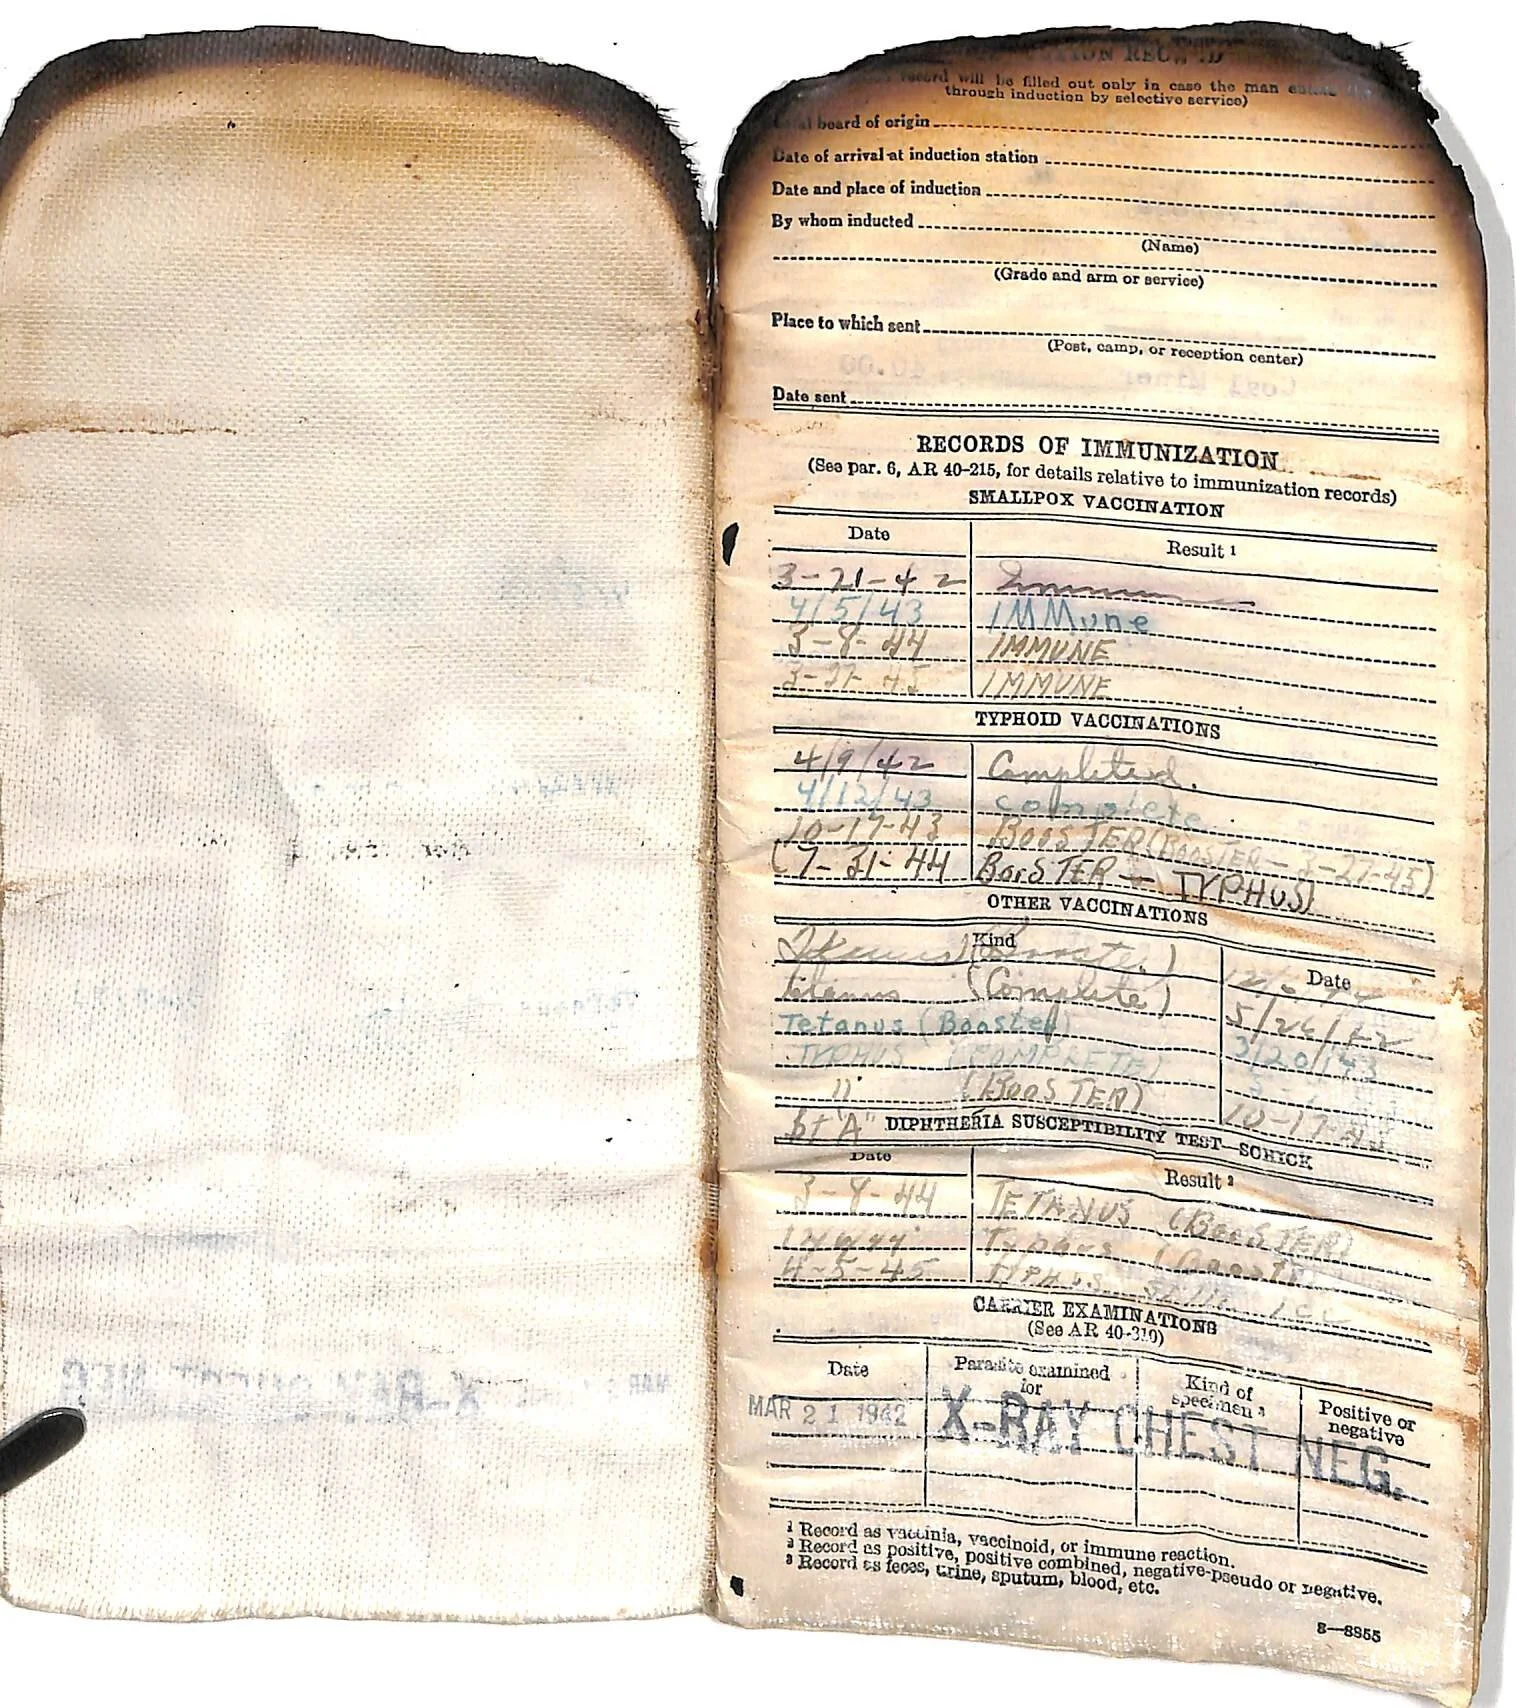 record will be filled out only in case the man
through induction by selective service)
board of origin
Date of arrival at induction station
Date and place of induction
By whom inducted
(Name)
(Grade and arm or service)
Place to which sent
(Post, camp, or reception center)
Date sent
RECORDS OF IMMUNIZATION
(See par. 6, AR 40-215, for details relative to immunization records)
SMALLPOX VACCINATION
Date Result 1
3-21-42 Immune
4/5/43 IMMune
3-8-44 IMMUNE
3-27-45 IMMUNE
TYPHOID VACCINATIONS
4/9/42 Completed.
4/12/43 complete
10-17-43 BOOSTER (BOOSTER - 3-27-45)
(7-31-44 BOOSTER - TYPHUS)
OTHER VACCINATIONS
Kind Date
(Booster)
tetanus (Complete) 5/26/42
Tetanus (Booster) 3/20/43
TYPHUS (COMPLETE)
" (BOOSTER) 10-17-43
"A" DIPHTHERIA SUSCEPTIBILITY TEST—SCHICK
Date Result 2
3-8-44 TETANUS (BOOSTER)
Typhus (Booster)
4-5-45 TYPHUS
CARRIER EXAMINATIONS
(See AR 40-310)
Date Parasite examined for Kind of specimen 3 Positive or negative
MAR 21 1942 X-RAY CHEST NEG.
1 Record as vaccinia, vaccinoid, or immune reaction.
2 Record as positive, positive combined, negative-pseudo or negative.
3 Record as feces, urine, sputum, blood, etc.
8—8855